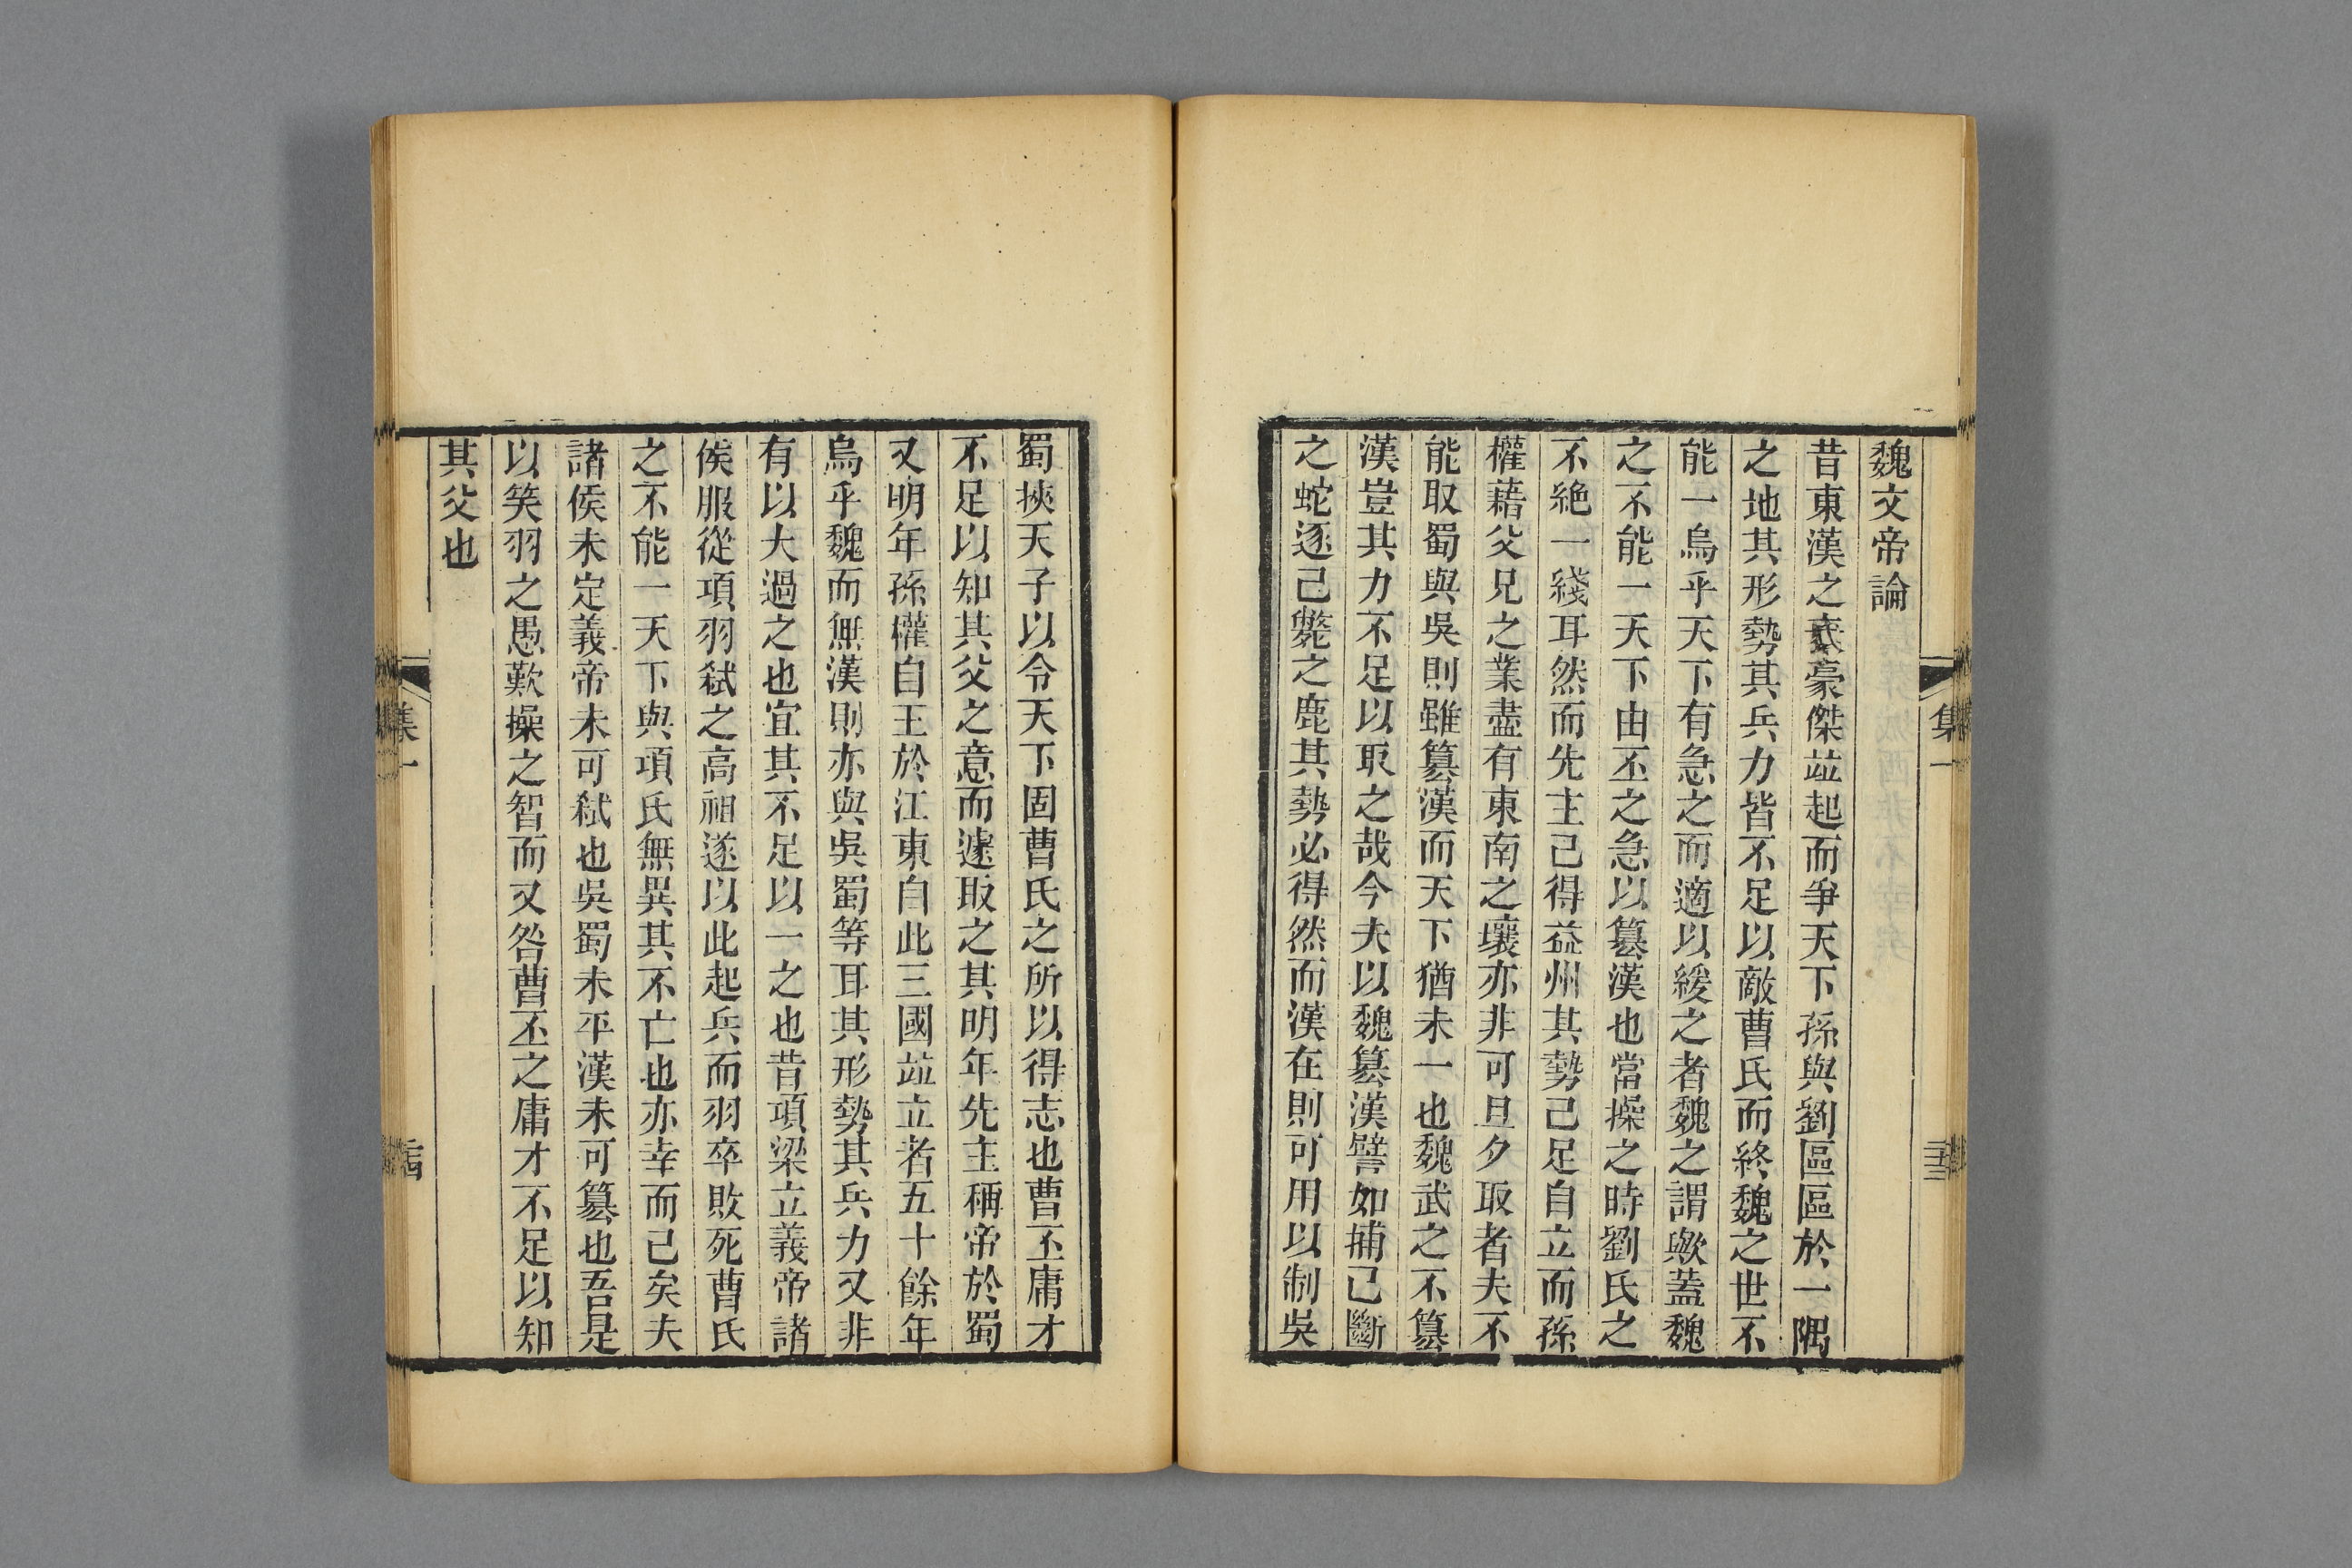 魏文帝論
昔東漢之衰豪傑竝起而爭天下孫與劉區區於一隅
之地其形勢其兵力皆不足以敵曹氏而終魏之世不
能一烏乎天下有急之而適以緩之者魏之謂歟蓋魏
之不能一天下由丕之急以簒漢也當操之時劉氏之
不絶一綫耳然而先主已得益州其勢已足自立而孫
權藉父兄之業盡有東南之壤亦非可旦夕取者夫不
能取蜀與吳則雖簒漢而天下猶未一也魏武之不簒
漢豈其力不足以取之哉今夫以魏簒漢譬如捕已斷
之蛇逐已斃之鹿其勢必得然而漢在則可用以制吳
集一
蜀挾天子以令天下固曹氏之所以得志也曹丕庸才
不足以知其父之意而遽取之其明年先主稱帝於蜀
又明年孫權自王於江東自此三國竝立者五十餘年
烏乎魏而無漢則亦與吳蜀等耳其形勢其兵力又非
有以大過之也宜其不足以一之也昔項梁立義帝諸
侯服從項羽弒之高祖遂以此起兵而羽卒敗死曹氏
之不能一天下與項氏無異其不亡也亦幸而已矣夫
諸侯未定義帝未可弒也吳蜀未平漢未可簒也吾是
以笑羽之愚歎操之智而又咎曹丕之庸才不足以知
其父也
集一